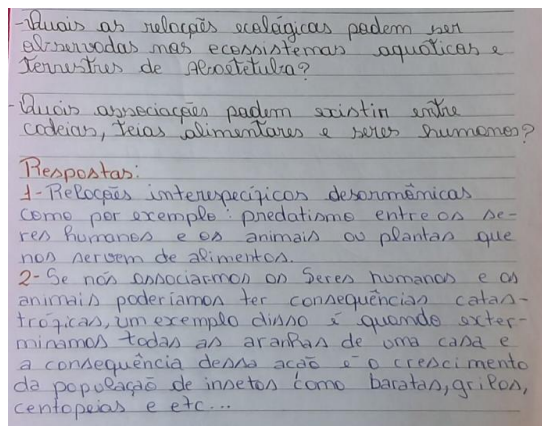 -Quais as relações ecológicas podem ser
observadas nos ecossistemas aquáticos e
terrestres de Abaetetuba?
-Quais associações podem existir entre
cadeias, teias alimentares e seres humanos?
Respostas:
1-Relações interespecíficos desarmônicas
como por exemplo: predatismo entre os se-
res humanos e os animais ou plantas que
nos servem de alimentos.
2-Se nós associarmos os Seres humanos e os
animais poderíamos ter consequências catas-
tróficas, um exemplo disso é quando exter-
minamos todas as aranhas de uma casa e
a consequência dessa ação é o crescimento
da população de insetos como baratas, grilos,
centopeias e etc...